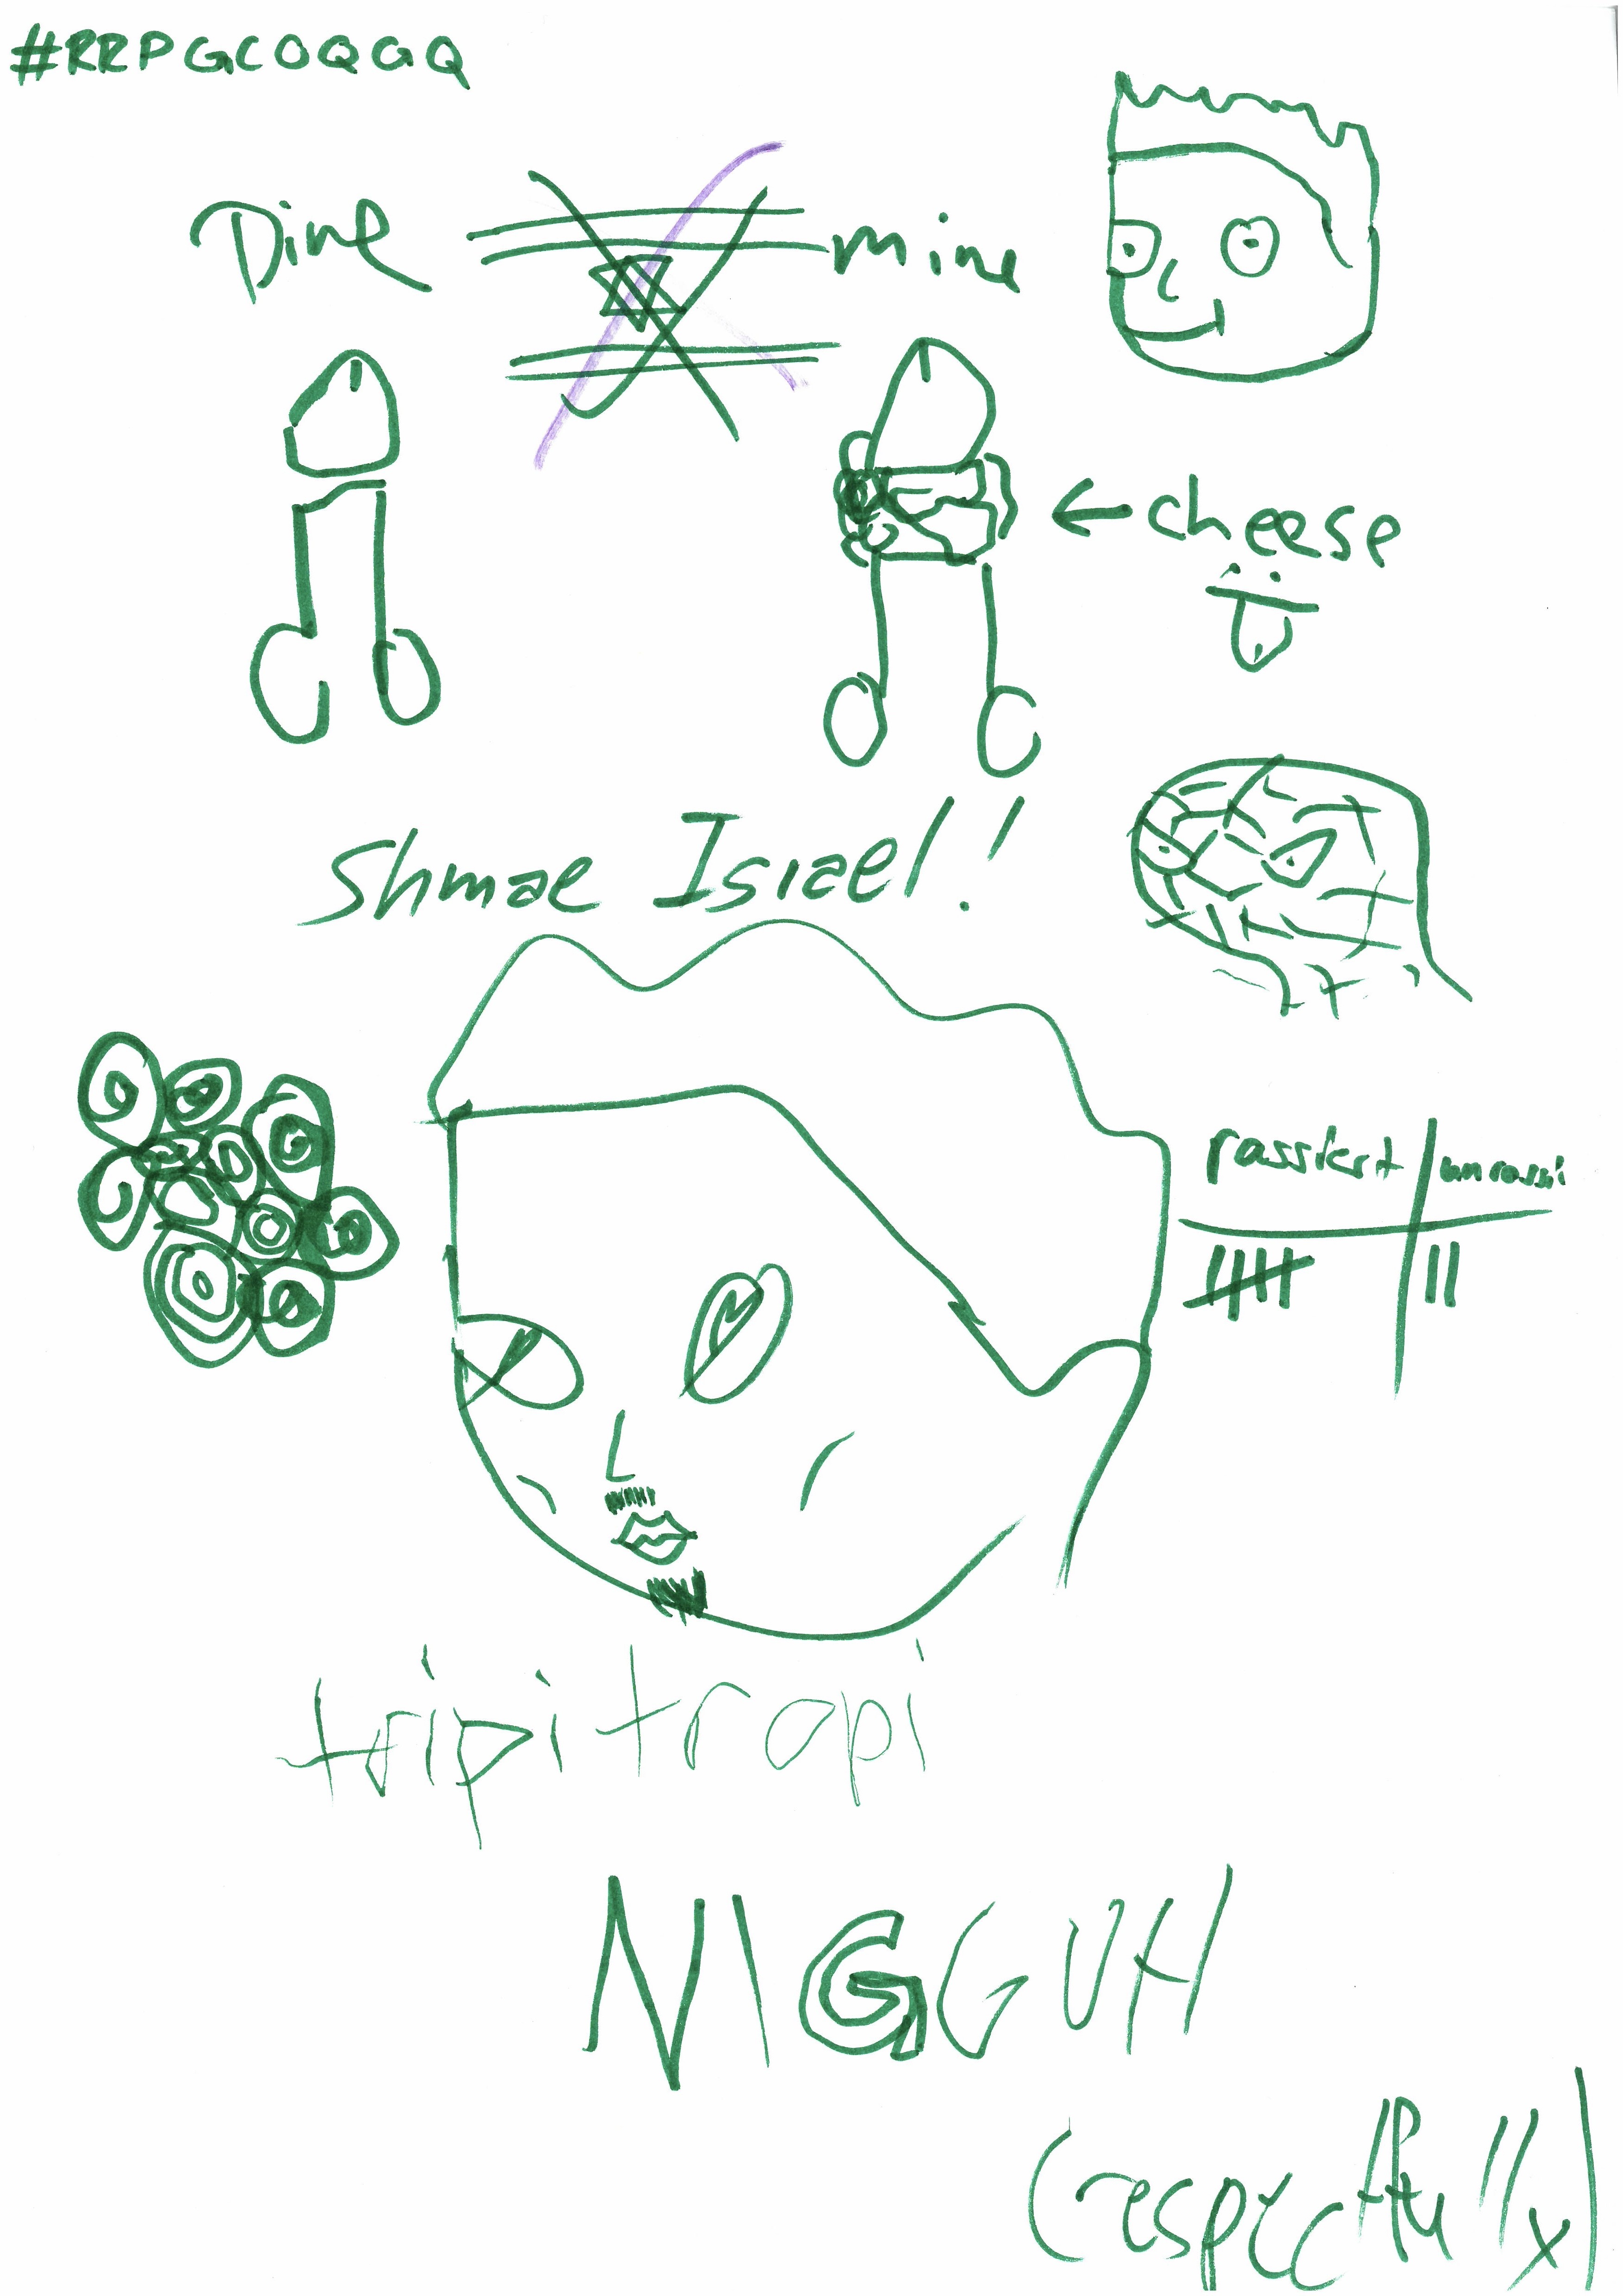 #RRPGCOQGQ
Dine mine
← cheese
Shmae Israel!
rasiert unrasi
tripi tropi
NIGGUH
(respectfully)